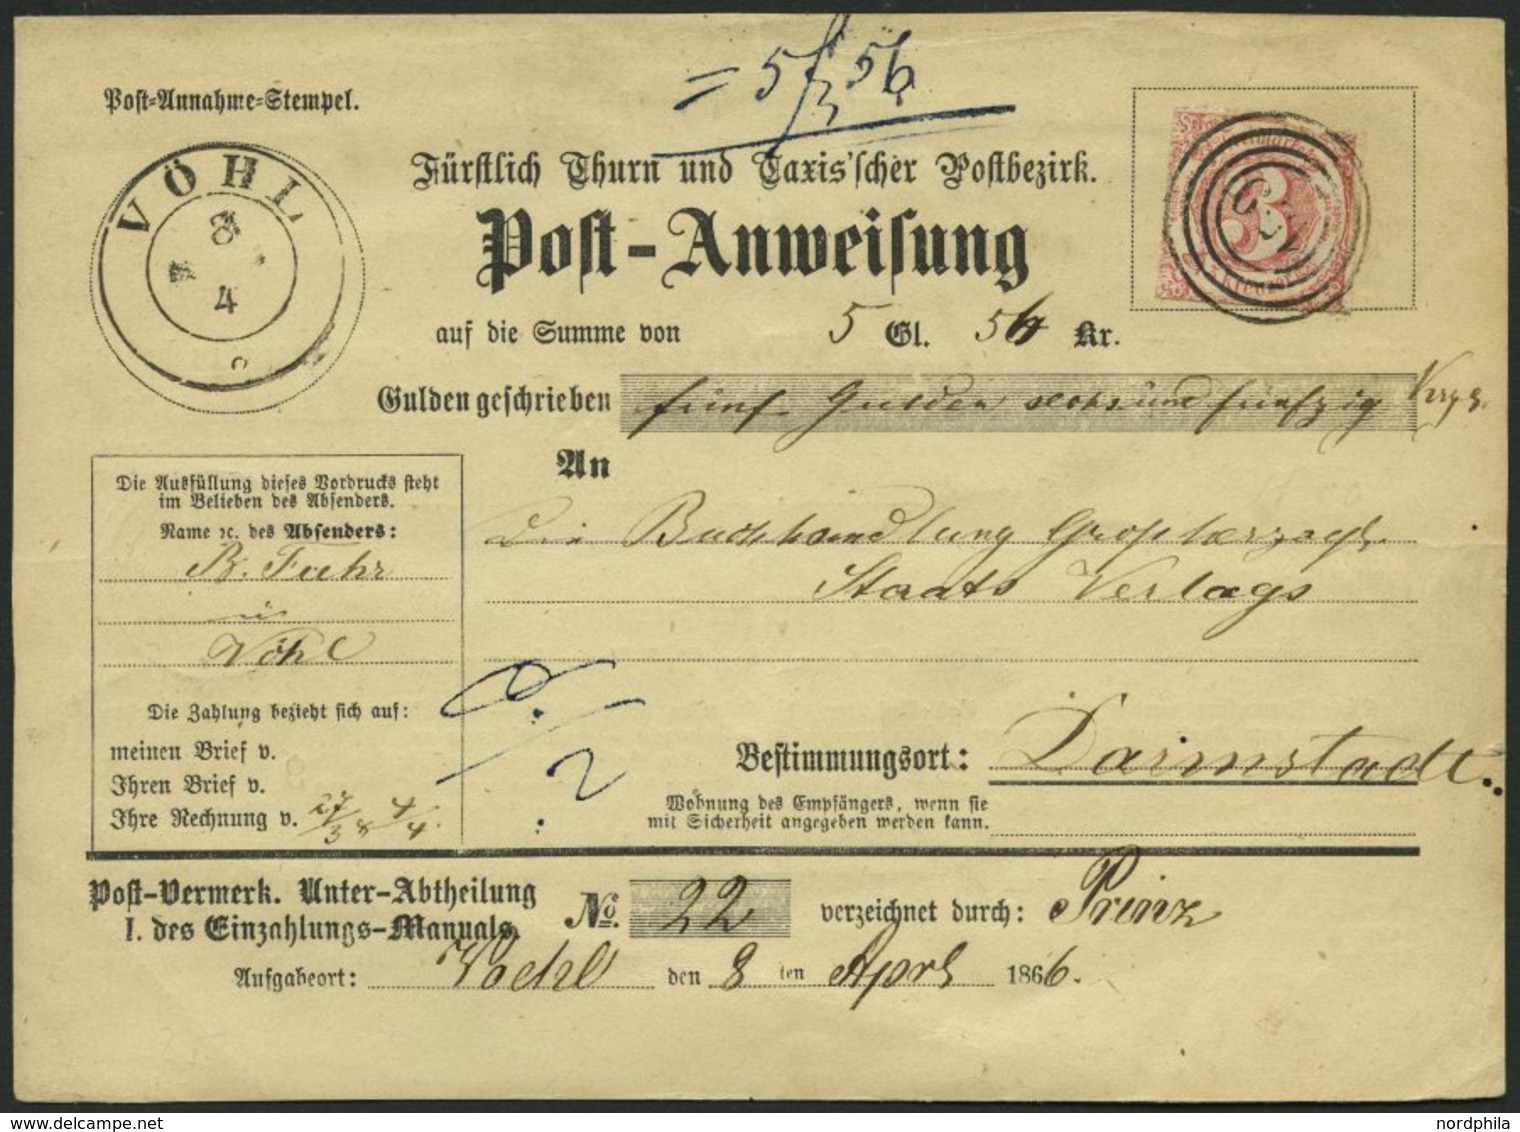 = 5 f 56
Post-Annahme-Stempel.
VÖHL
8
4
Fürstlich Thurn und Taxis'scher Postbezirk.
Post-Anweisung
3
auf die Summe von 5 Gl. 56 Kr.
Gulden geschrieben fünf Gulden sechs und fünfzig
An
Die Ausfüllung dieses Vordrucks steht
im Belieben des Absenders.
Name ꝛc. des Absenders:
B. Fuhr
in
Vöhl
Die Buchhandlung Großherzogl.
Staats Verlags
Die Zahlung bezieht sich auf:
meinen Brief v.
Ihren Brief v.
Ihre Rechnung v. 27/3
Bestimmungsort: Darmstadt.
Wohnung des Empfängers, wenn sie
mit Sicherheit angegeben werden kann.
Post-Vermerk. Unter-Abtheilung
I. des Einzahlungs-Manuals.
No. 22 verzeichnet durch: Prinz
Aufgabeort: Voehl den 8 ten April 1866.
nordphila